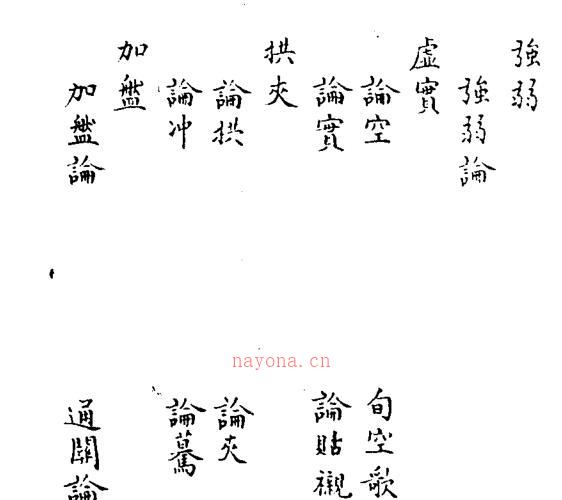 強弱
強弱論
虛實
論空
旬空歌
論實
論貼襯
拱夾
論拱
論夾
論冲
論驀
加盤
加盤論
通關論
nayona.cn